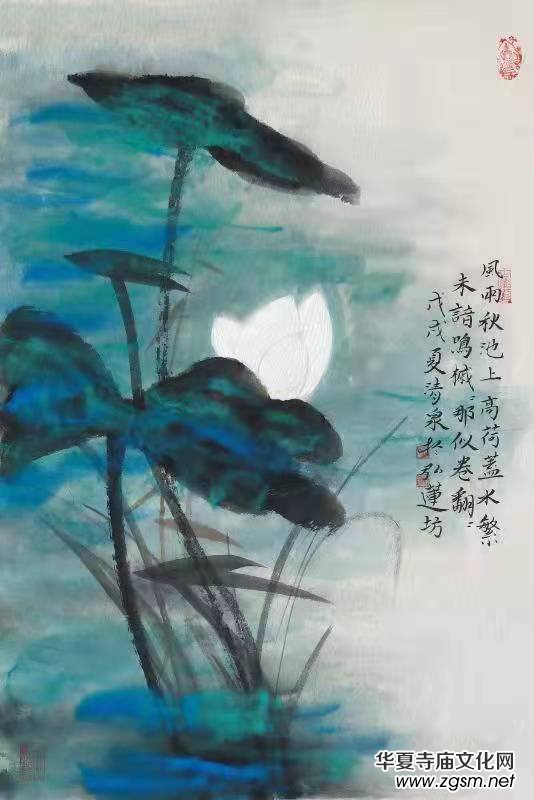 風雨秋池上高荷蓋水繁
未諳鳴槭〻那似卷翻〻
戊戌夏清泉於弘蓮坊
华夏寺庙文化网
www.zgsm.net